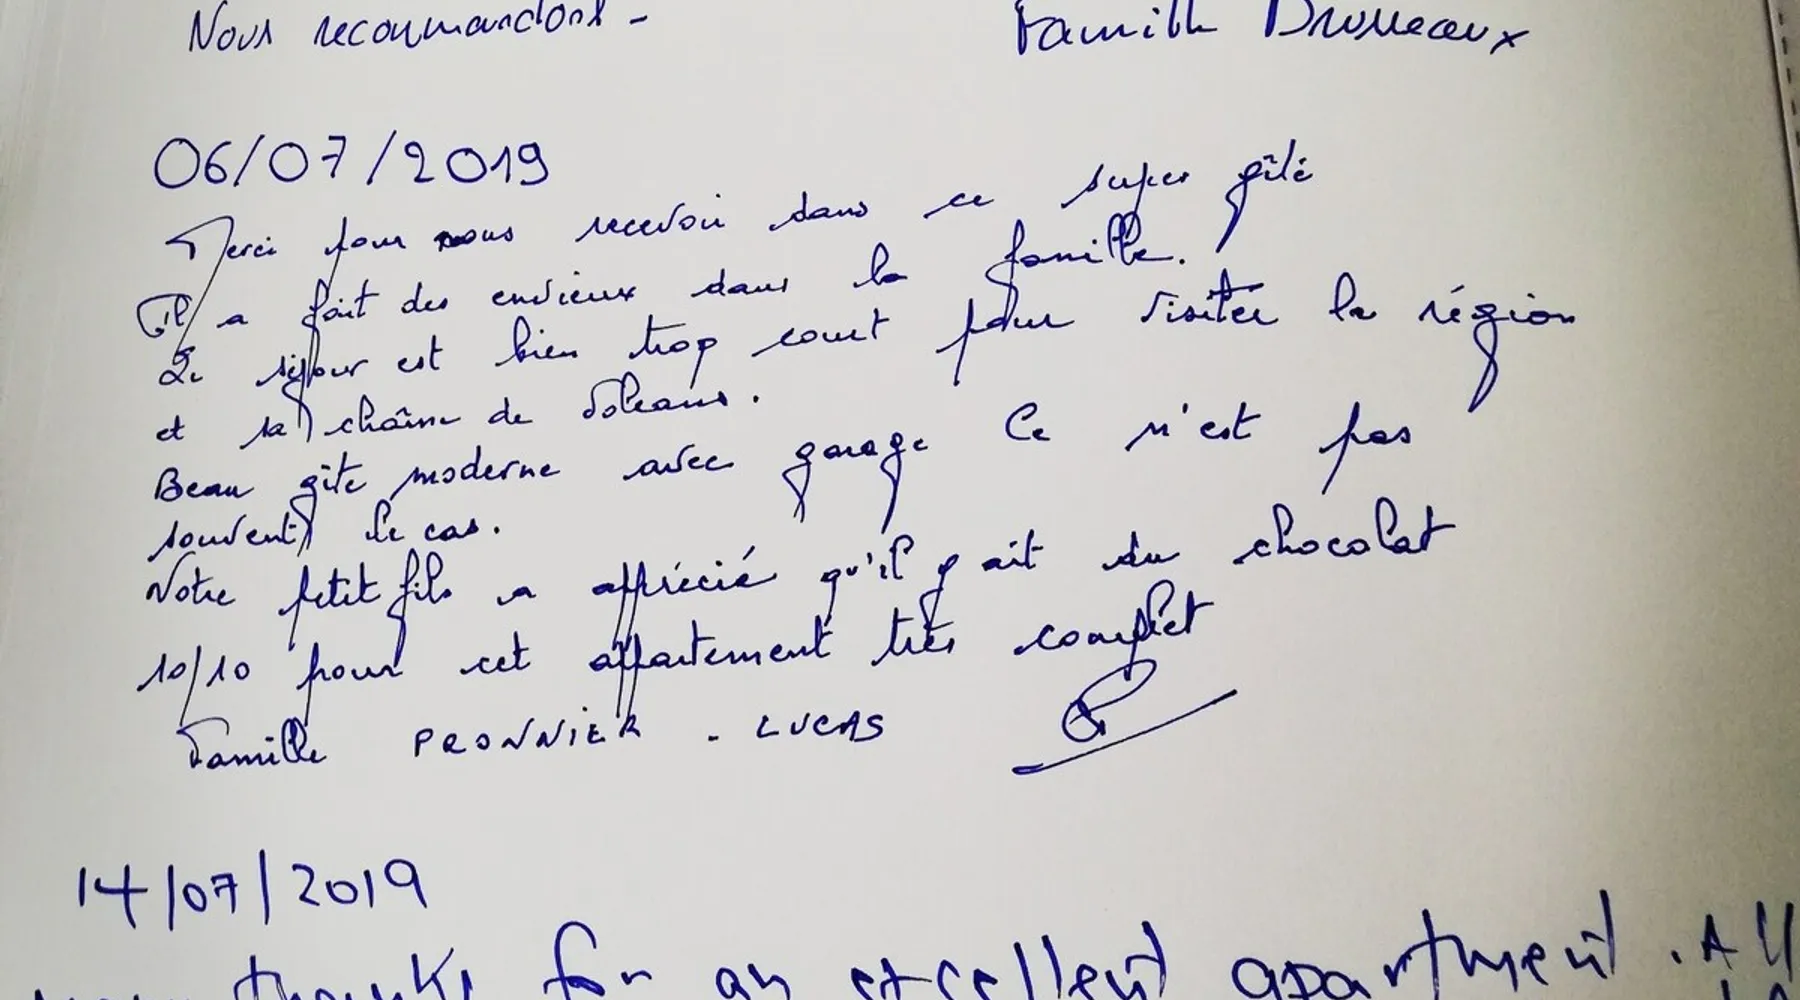 Nous recommandons - Famille Drumeaux
06/07/2019
Merci pour nous recevoir dans ce super gîte
Il a fait des envieux dans la famille.
Le séjour est bien trop court pour visiter la région
et sa chaîne de volcans.
Beau gîte moderne avec garage Ce n'est pas
souvent le cas.
Notre petit fils a apprécié qu'il y ait du chocolat
10/10 pour cet appartement très complet
Famille PRONNIER - LUCAS
14/07/2019
thanks for an excellent apartment. All